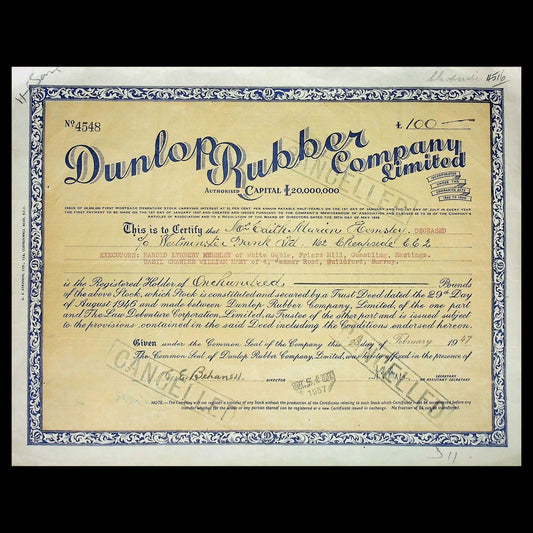 Nº 4548
£ 100
Dunlop Rubber
Company
Limited
AUTHORISED CAPITAL £20,000,000
INCORPORATED
UNDER THE
COMPANIES ACTS
ISSUE OF FIRST MORTGAGE DEBENTURE STOCK CARRYING INTEREST AT PER CENT PER ANNUM PAYABLE HALF-YEARLY ON THE 1ST DAY OF JANUARY AND THE 1ST DAY OF JULY IN EVERY YEAR
THE FIRST PAYMENT TO BE MADE ON THE 1ST DAY OF JANUARY 1947 AND CREATED AND ISSUED PURSUANT TO THE COMPANY'S MEMORANDUM OF ASSOCIATION AND CLAUSE OF THE COMPANY'S
ARTICLES OF ASSOCIATION AND TO A RESOLUTION OF THE BOARD OF DIRECTORS DATED THE DAY OF MAY 1946
This is to Certify that Marion Hemsley, DECEASED
c/o Westminster Bank Ltd. 162 Cheapside E.C.2
EXECUTORS: HAROLD HEMSLEY of White Gable, Friars Hill, Guestling, Hastings.
BASIL CHARLES WILLIAM HART of 4, Road, Guildford, Surrey.
is the Registered Holder of One hundred Pounds
of the above Stock, which Stock is constituted and secured by a Trust Deed dated the 29th Day
of August 1946 and made between Dunlop Rubber Company, Limited, of the one part
and The Law Debenture Corporation, Limited, as Trustee of the other part and is issued subject
to the provisions contained in the said Deed including the Conditions endorsed hereon.
Given under the Common Seal of the Company this February 1947
The Common Seal of Dunlop Rubber Company, Limited, was hereby affixed in the presence of
DIRECTOR
SECRETARY
OR ASSISTANT SECRETARY
1957
CANCELLED
CANCELLED
CANCELLED
NOTE.—The Company will not register a transfer of any Stock without the production of the Certificate relating to such Stock which Certificate must be surrendered before any
transfer whether for the whole or any portion thereof can be registered or a new Certificate issued in exchange. No fraction of £1 can be transferred.